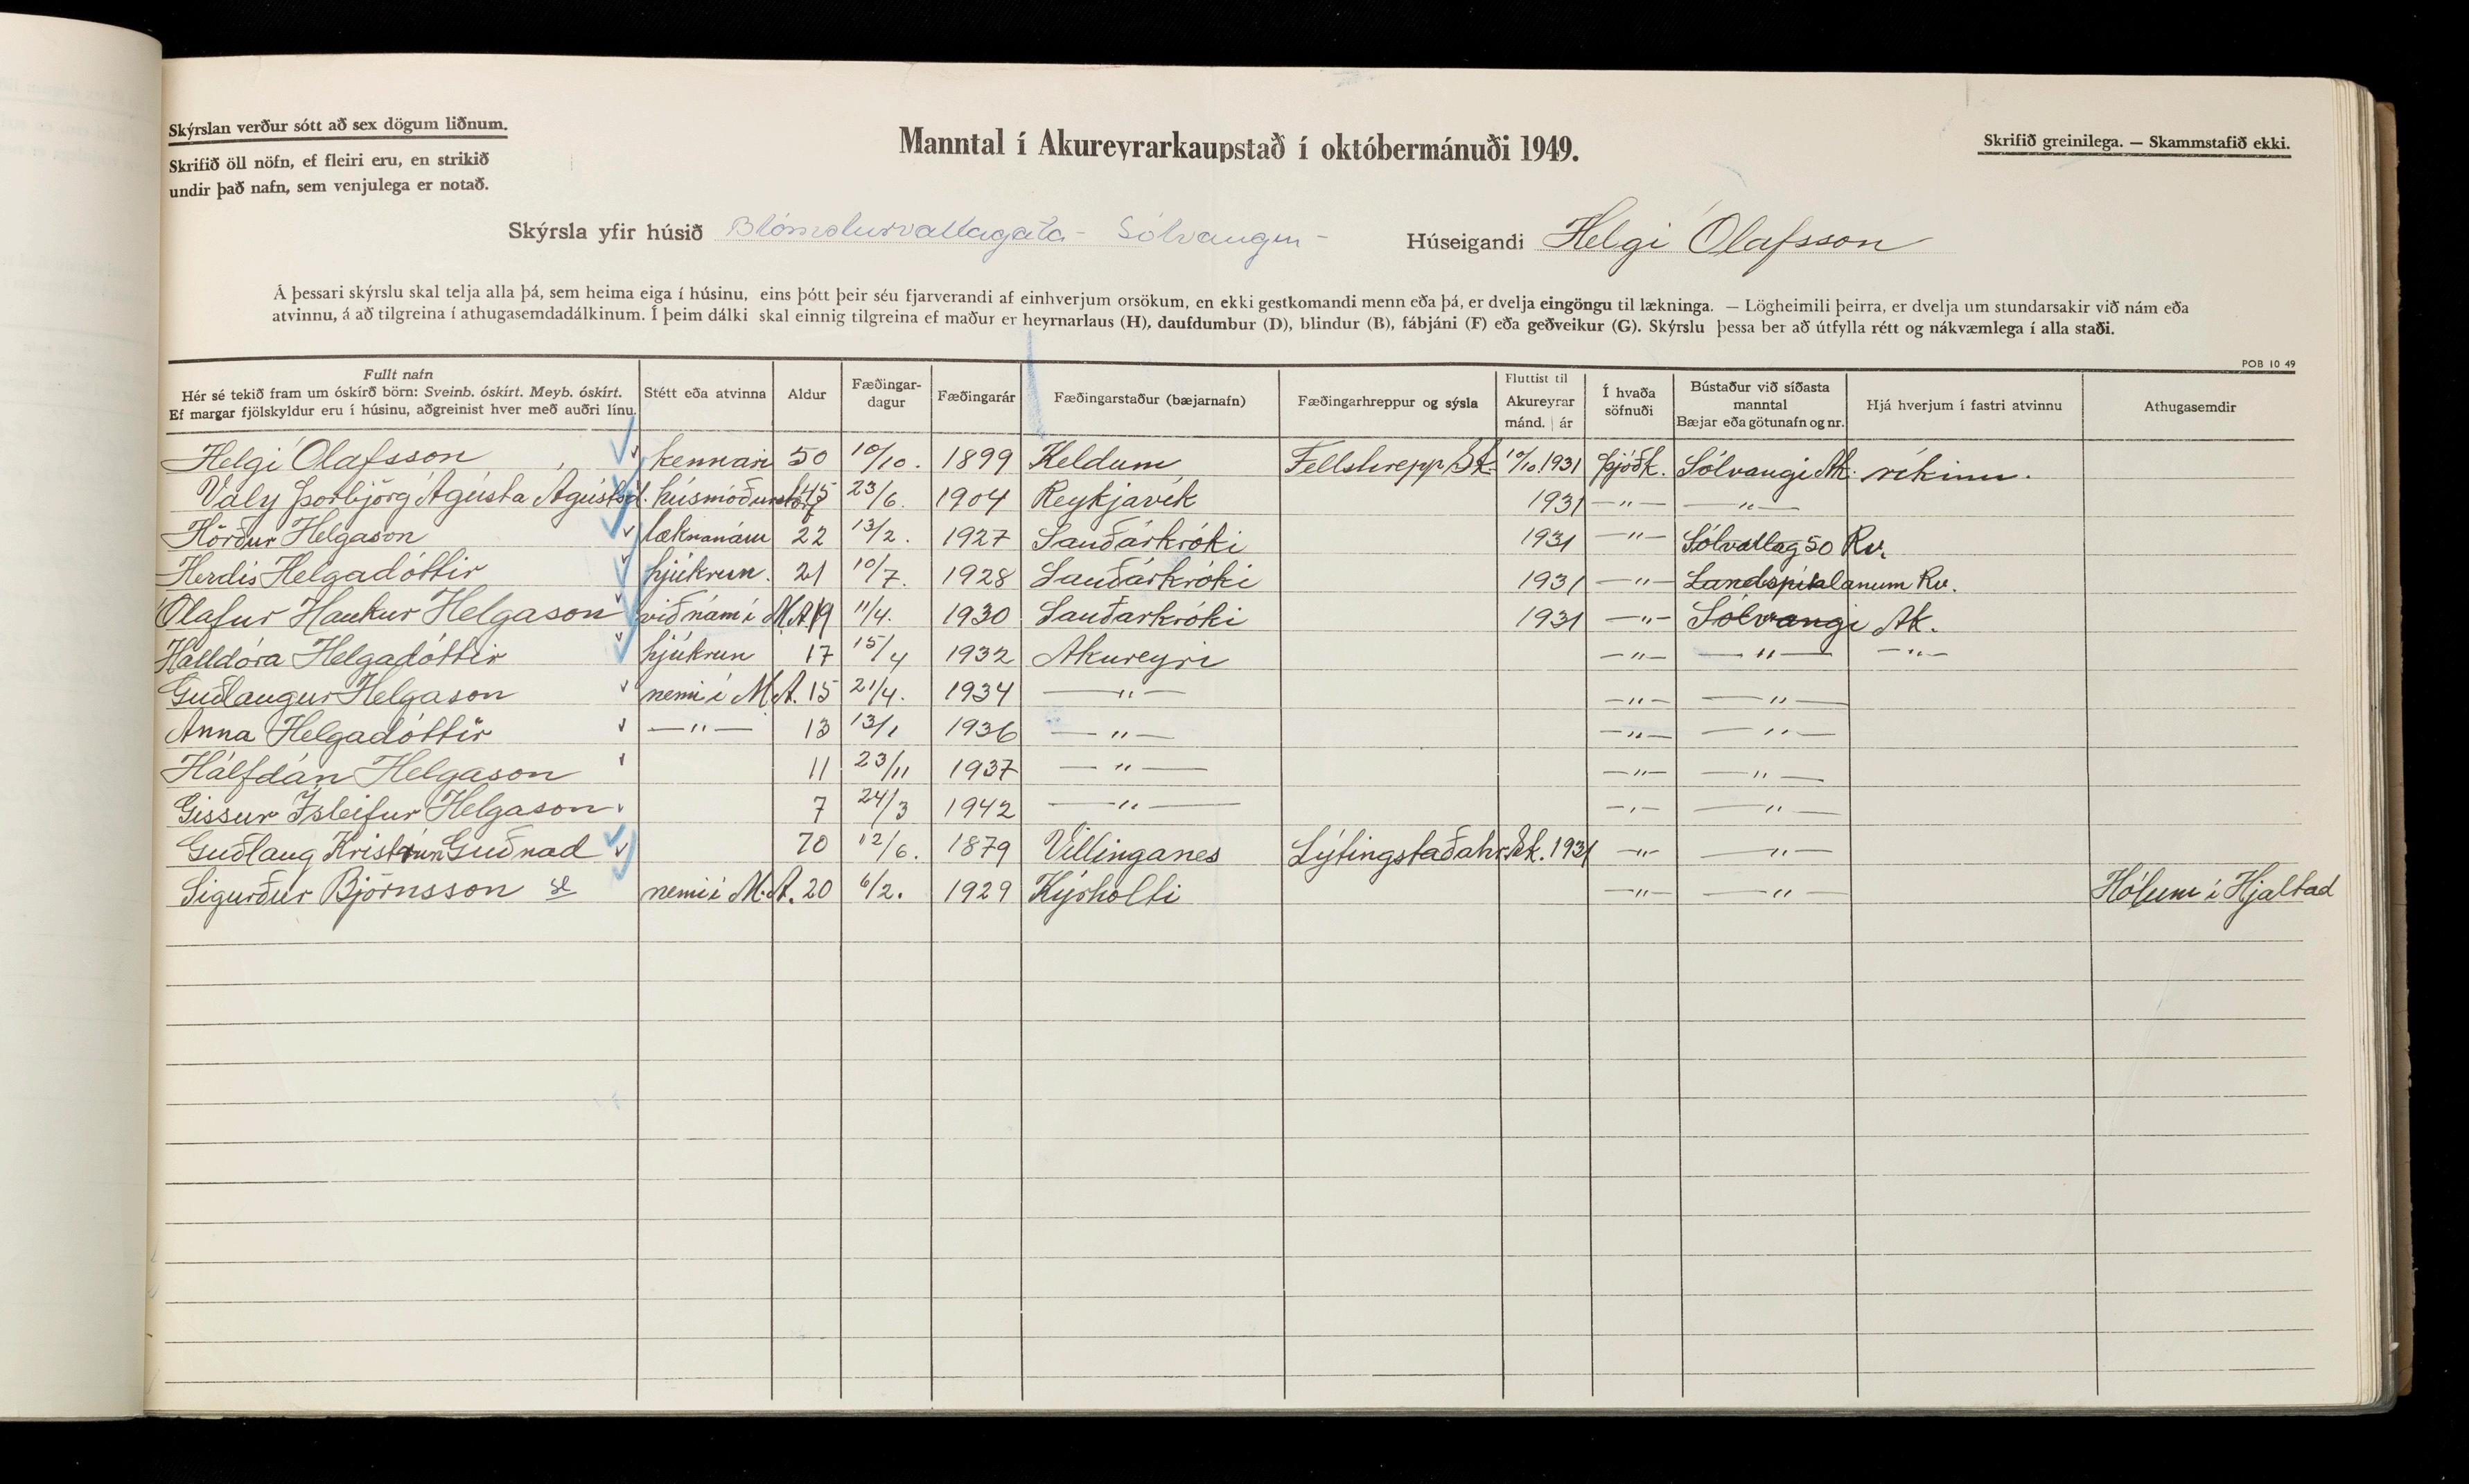 Skýrslan verður sótt að sex dögum liðnum.
Skrifið öll nöfn, ef fleiri eru, en strikið
undir það nafn, sem venjulega er notað.
Manntal í Akureyrarkaupstað í októbermánuði 1949.
Skrifið greinilega. — Skammstafið ekki.
Skýrsla yfir húsið Sólvangur - Húseigandi Helgi Ólafsson
Á þessari skýrslu skal telja alla þá, sem heima eiga í húsinu, eins þótt þeir séu fjarverandi af einhverjum orsökum, en ekki gestkomandi menn eða þá, er dvelja eingöngu til lækninga. — Lögheimili þeirra, er dvelja um stundarsakir við nám eða
atvinnu, á að tilgreina í athugasemdadálkinum. Í þeim dálki skal einnig tilgreina ef maður er heyrnarlaus (H), daufdumbur (D), blindur (B), fábjáni (F) eða geðveikur (G). Skýrslu þessa ber að útfylla rétt og nákvæmlega í alla staði.
POB 10 49
Fullt nafn
Hér sé tekið fram um óskírð börn: Sveinb. óskírt. Meyb. óskírt.
Ef margar fjölskyldur eru í húsinu, aðgreinist hver með auðri línu.
Stétt eða atvinna
Aldur
Fæðingar-
dagur
Fæðingarár
Fæðingarstaður (bæjarnafn)
Fæðingarhreppur og sýsla
Fluttist til
Akureyrar
mánd. | ár
Í hvaða
söfnuði
Bústaður við síðasta
manntal
Bæjar eða götunafn og nr.
Hjá hverjum í fastri atvinnu
Athugasemdir
Helgi Ólafsson kennari 50 10/10. 1899 Keldum Fellshrepp Sk. 10/10. 1931 þjóðk. Sólvangi Ak. ríkinu.
Valý Þorbjörg Ágústa Ágústsd. húsmóðurstörf 45 23/6. 1904 Reykjavík 1931 —"— —"—
Hörður Helgason læknanám 22 13/2. 1927 Sauðárkróki 1931 —"— Sólvallag 50 Rv.
Herdís Helgadóttir hjúkrun. 21 10/7. 1928 Sauðárkróki 1931 —"— Landspítalanum Rv.
Ólafur Haukur Helgason við nám í M.A. 19 11/4. 1930 Sauðarkróki 1931 —"— Sólvangi Ak.
Halldóra Helgadóttir hjúkrun 17 15/4 1932 Akureyri —"— —"— —"—
Guðlaugur Helgason nemi í M.A. 15 21/4. 1934 —"— —"— —"—
Anna Helgadóttir —"— 13 13/1 1936 —"— —"— —"—
Hálfdán Helgason 11 23/11 1937 —"— —"— —"—
Gissur Ísleifur Helgason 7 24/3 1942 —"— —"— —"—
Guðlaug Kristrún Guðnad 70 12/6. 1879 Villinganes Lýtingstaðahr. Sk. 1931 —"— —"—
Sigurður Björnsson nemi í M.A. 20 6/2. 1929 Kýrholti —"— —"— Hólum í Hjaltad